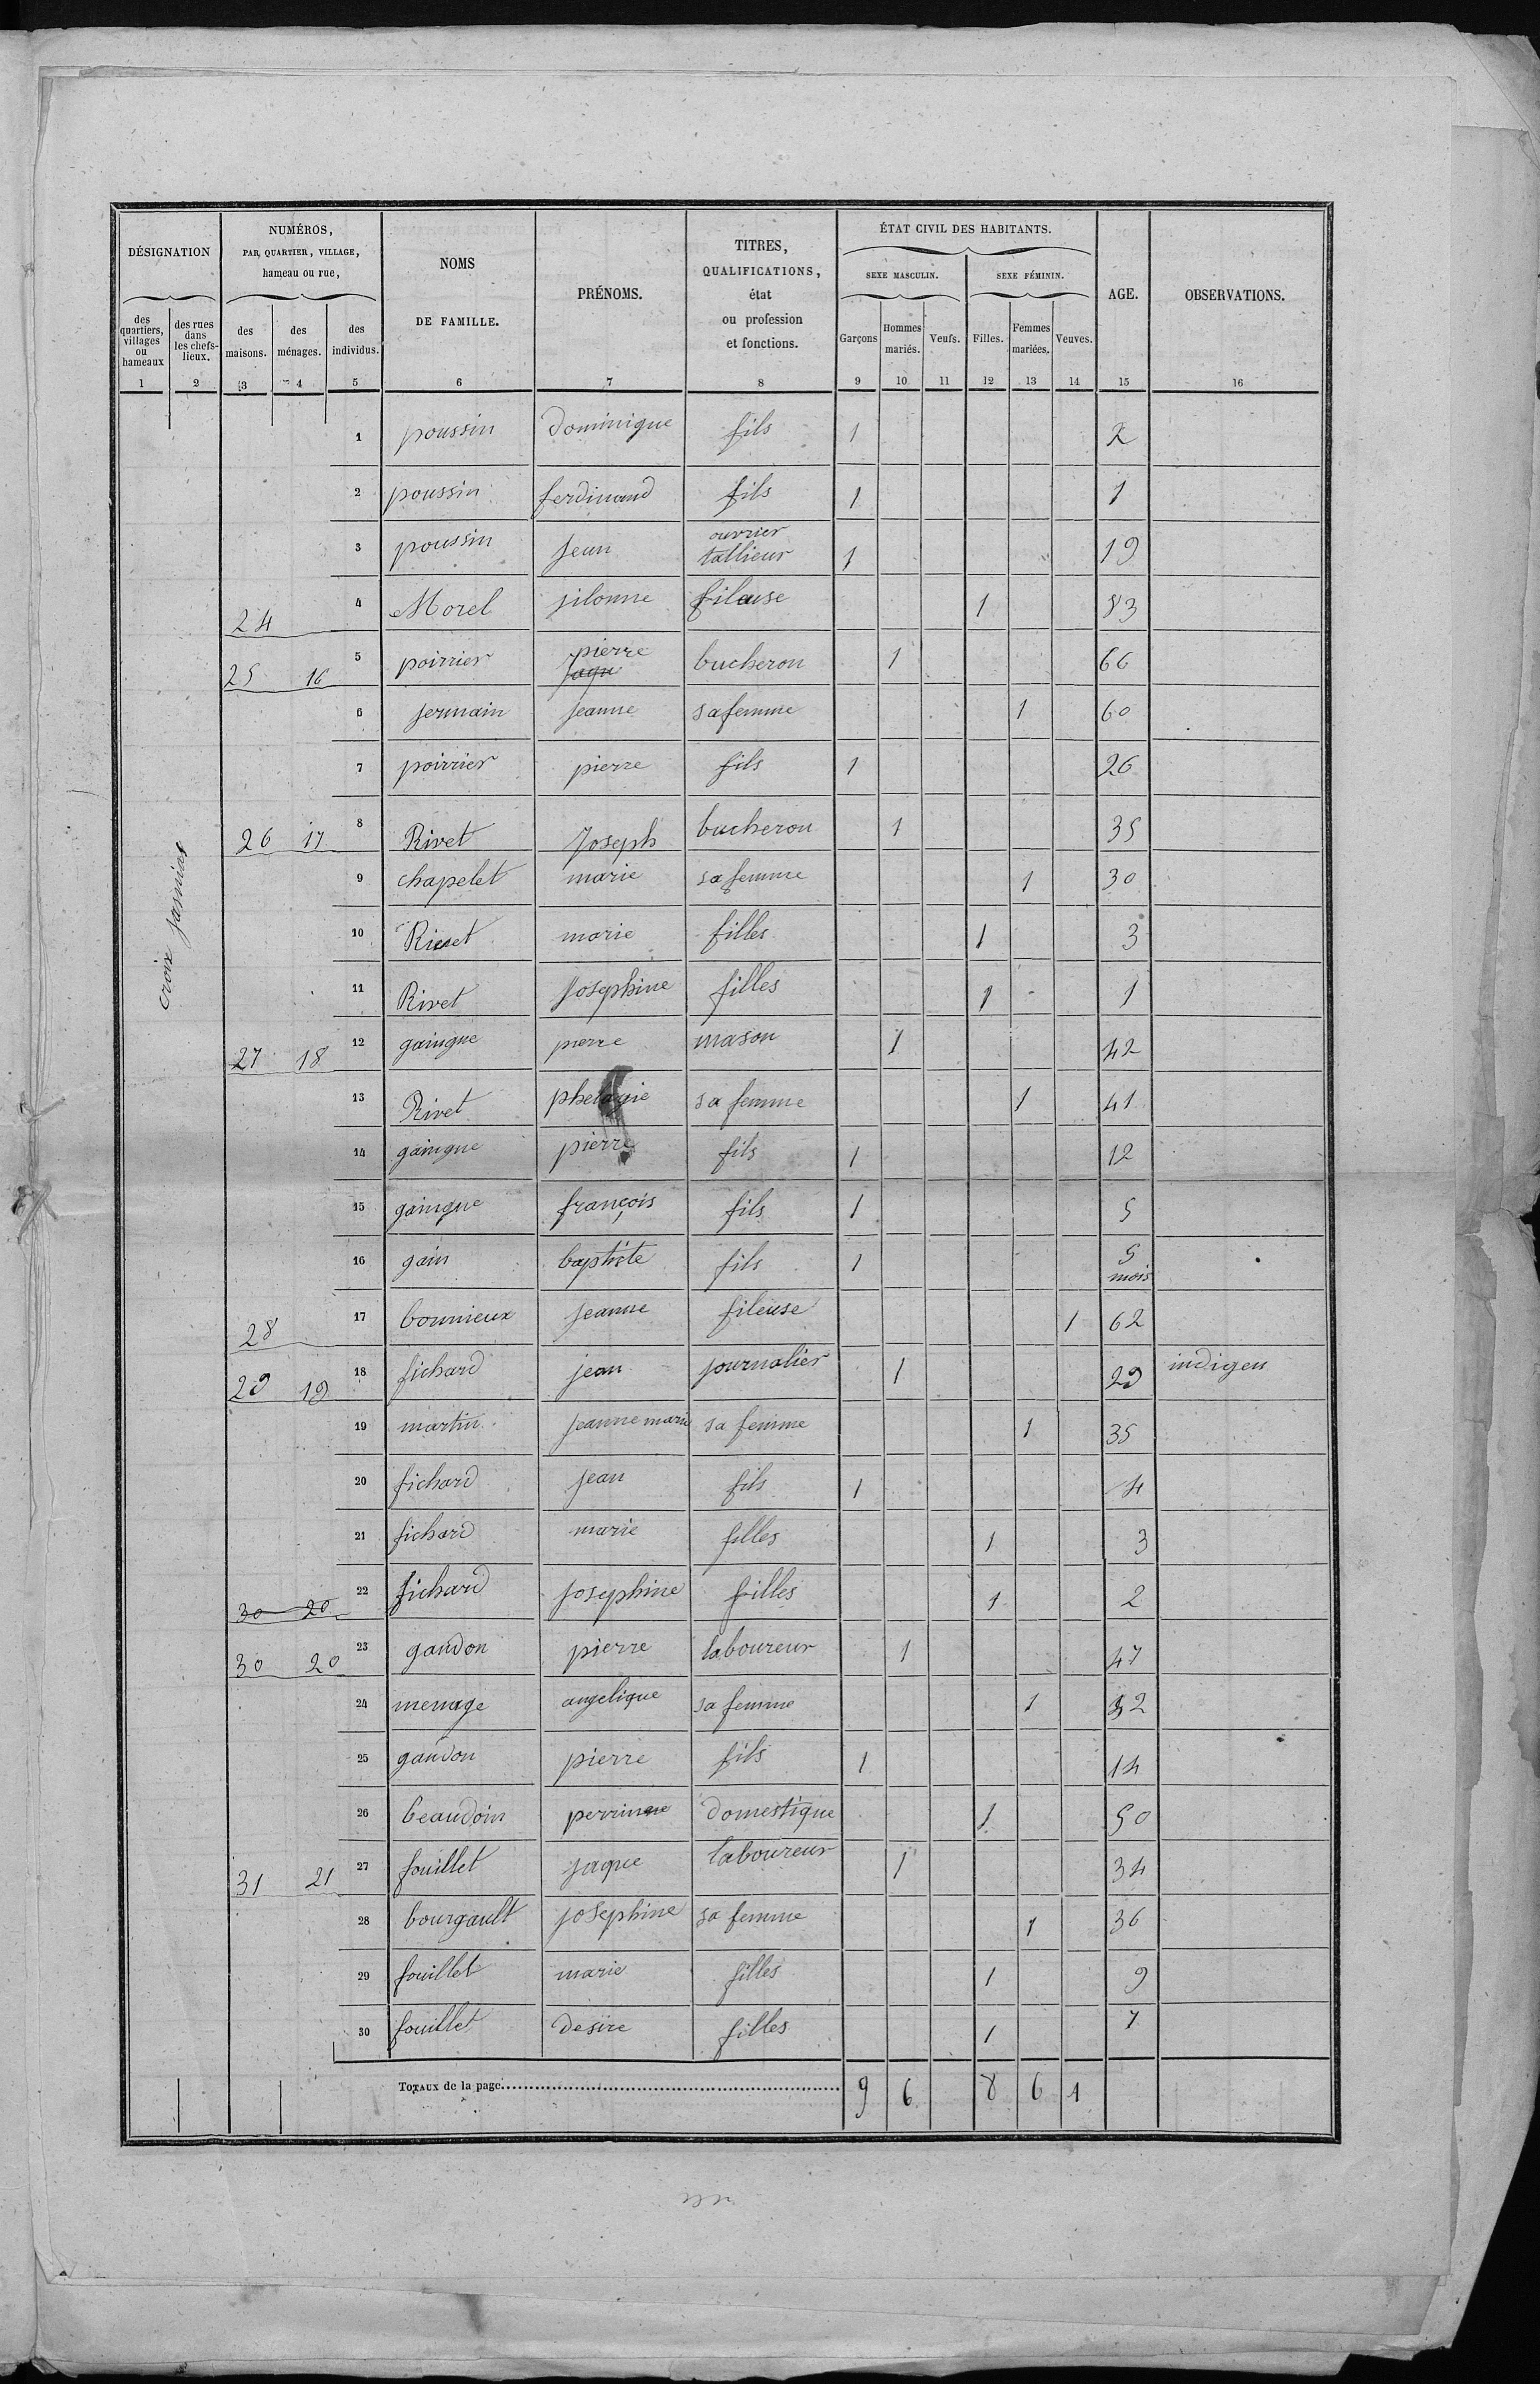 DÉSIGNATION
des quartiers, villages ou hameaux
des rues dans les chefs-lieux.
NUMÉROS,
PAR QUARTIER, VILLAGE,
hameau ou rue,
des maisons.
des ménages.
des individus.
NOMS
DE FAMILLE.
PRÉNOMS.
TITRES,
QUALIFICATIONS,
état
ou profession
et fonctions.
ÉTAT CIVIL DES HABITANTS.
SEXE MASCULIN.
SEXE FÉMININ.
Garçons
Hommes mariés.
Veufs.
Filles.
Femmes mariées.
Veuves.
AGE.
OBSERVATIONS.
1 2 3 4 5 6 7 8 9 10 11 12 13 14 15 16
croix
1 poussin dominique fils 1 2
2 poussin ferdinand fils 1 1
3 poussin jean ouvrier tallieur 1 19
24 4 Morel jilonne fileuse 1 83
25 16 5 poirrier pierre jaque bucheron 1 66
6 jermain jeanne sa femme 1 60
7 poirrier pierre fils 1 26
26 17 8 Rivet Joseph bucheron 1 35
9 chapelet marie sa femme 1 30
10 Rivet marie filles 1 3
11 Rivet Josephine filles 1 1
27 18 12 gaingne pierre mason 1 42
13 Rivet phelagie sa femme 1 41
14 gaingne pierre fils 1 12
15 gaingne françois fils 1 5
16 gain baptiste fils 1 5 mois
28 17 bonnieux jeanne fileuse 1 62
29 19 18 fichard jean journalier 1 29 indigen
19 martin jeanne marie sa femme 1 35
20 fichard jean fils 1 4
21 fichard marie filles 1 3
30 20 22 fichard josephine filles 1 2
30 20 23 gandon pierre laboureur 1 47
24 menage angelique sa femme 1 52
25 gandon pierre fils 1 14
26 beaudoin perrinne domestique 1 50
31 21 27 fouillet jaque laboureur 1 34
28 bourgault josephine sa femme 1 36
29 fouillet marie filles 1 9
30 fouillet desire filles 1 7
TOTAUX de la page 9 6 8 6 1